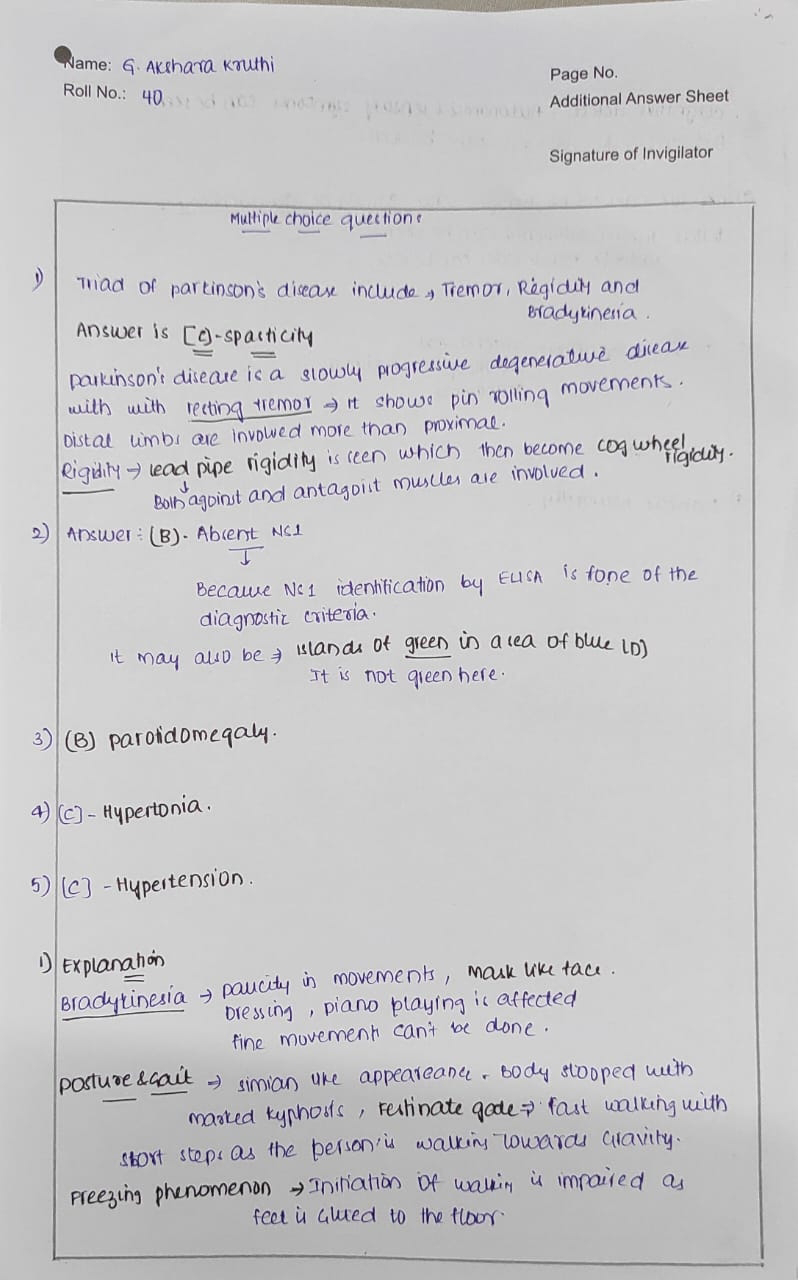 Name: G. Akshara Kruthi
Roll No.: 40
Page No.
Additional Answer Sheet
Signature of Invigilator
Multiple choice questions
1) Triad of parkinson's disease include → Tremor, Rigidity and
Bradykinesia.
Answer is [c]-spasticity
parkinson's disease is a slowly progressive degenerative disease
with with resting tremor → it shows pin rolling movements.
Distal limbs are involved more than proximal.
Rigidity → lead pipe rigidity is seen which then become cog wheel rigidity.
↓
Both agoinst and antagoist muscles are involved.
2) Answer: (B)- Absent NS1
↓
Because NS1 identification by ELISA is one of the
diagnostic criteria.
it may also be → islands of green in a sea of blue [D]
It is not green here.
3) (B) parotidomegaly.
4) [C] - Hypertonia.
5) [C] - Hypertension.
1) Explanation
Bradykinesia → paucity in movements, mask like face.
Dressing, piano playing is affected
fine movements can't be done.
posture & Gait → simian like appeareance. Body stooped with
marked kyphosis, festinate gade → fast walking with
short steps as the person is walking towards Gravity.
Freezing phenomenon → Initiation of walkin is impaired as
feet is Glued to the floor.